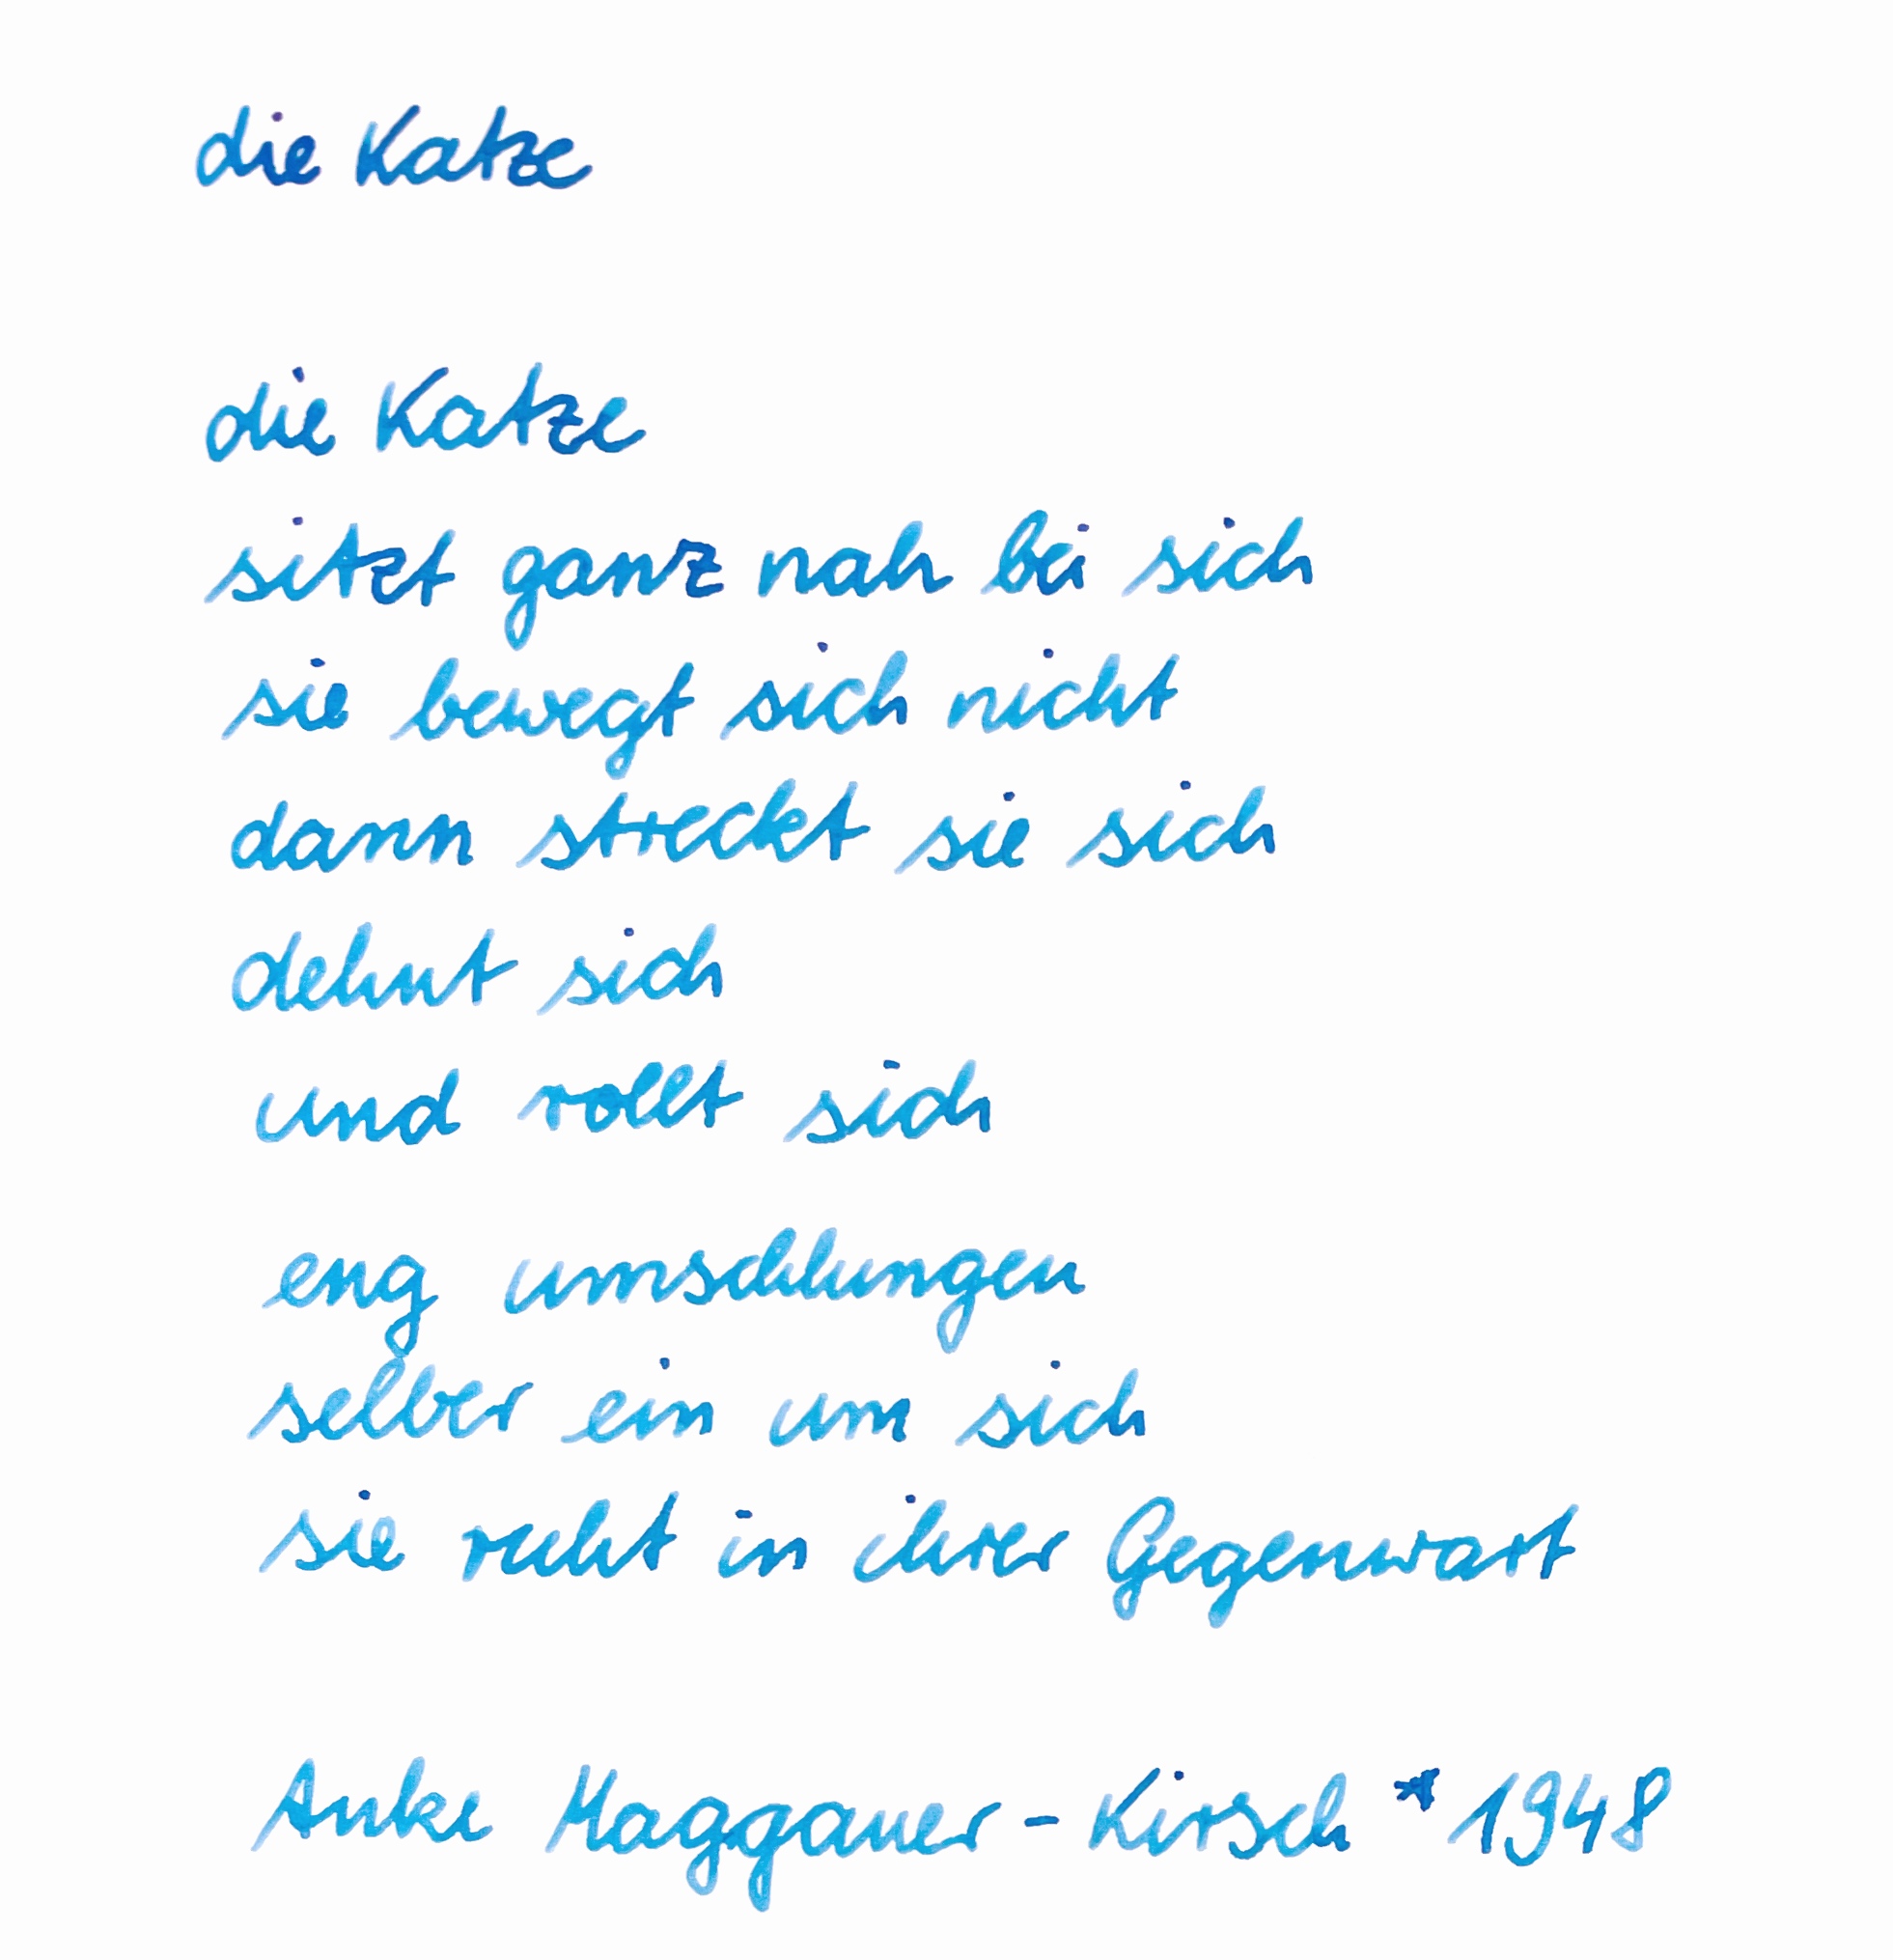 die Katze
die Katze
sitzt ganz nah bei sich
sie bewegt sich nicht
dann streckt sie sich
dehnt sich
und rollt sich
eng umschlungen
selber ein um sich
sie ruht in ihrer Gegenwart
Anke Maggauer-Kirsch *1948